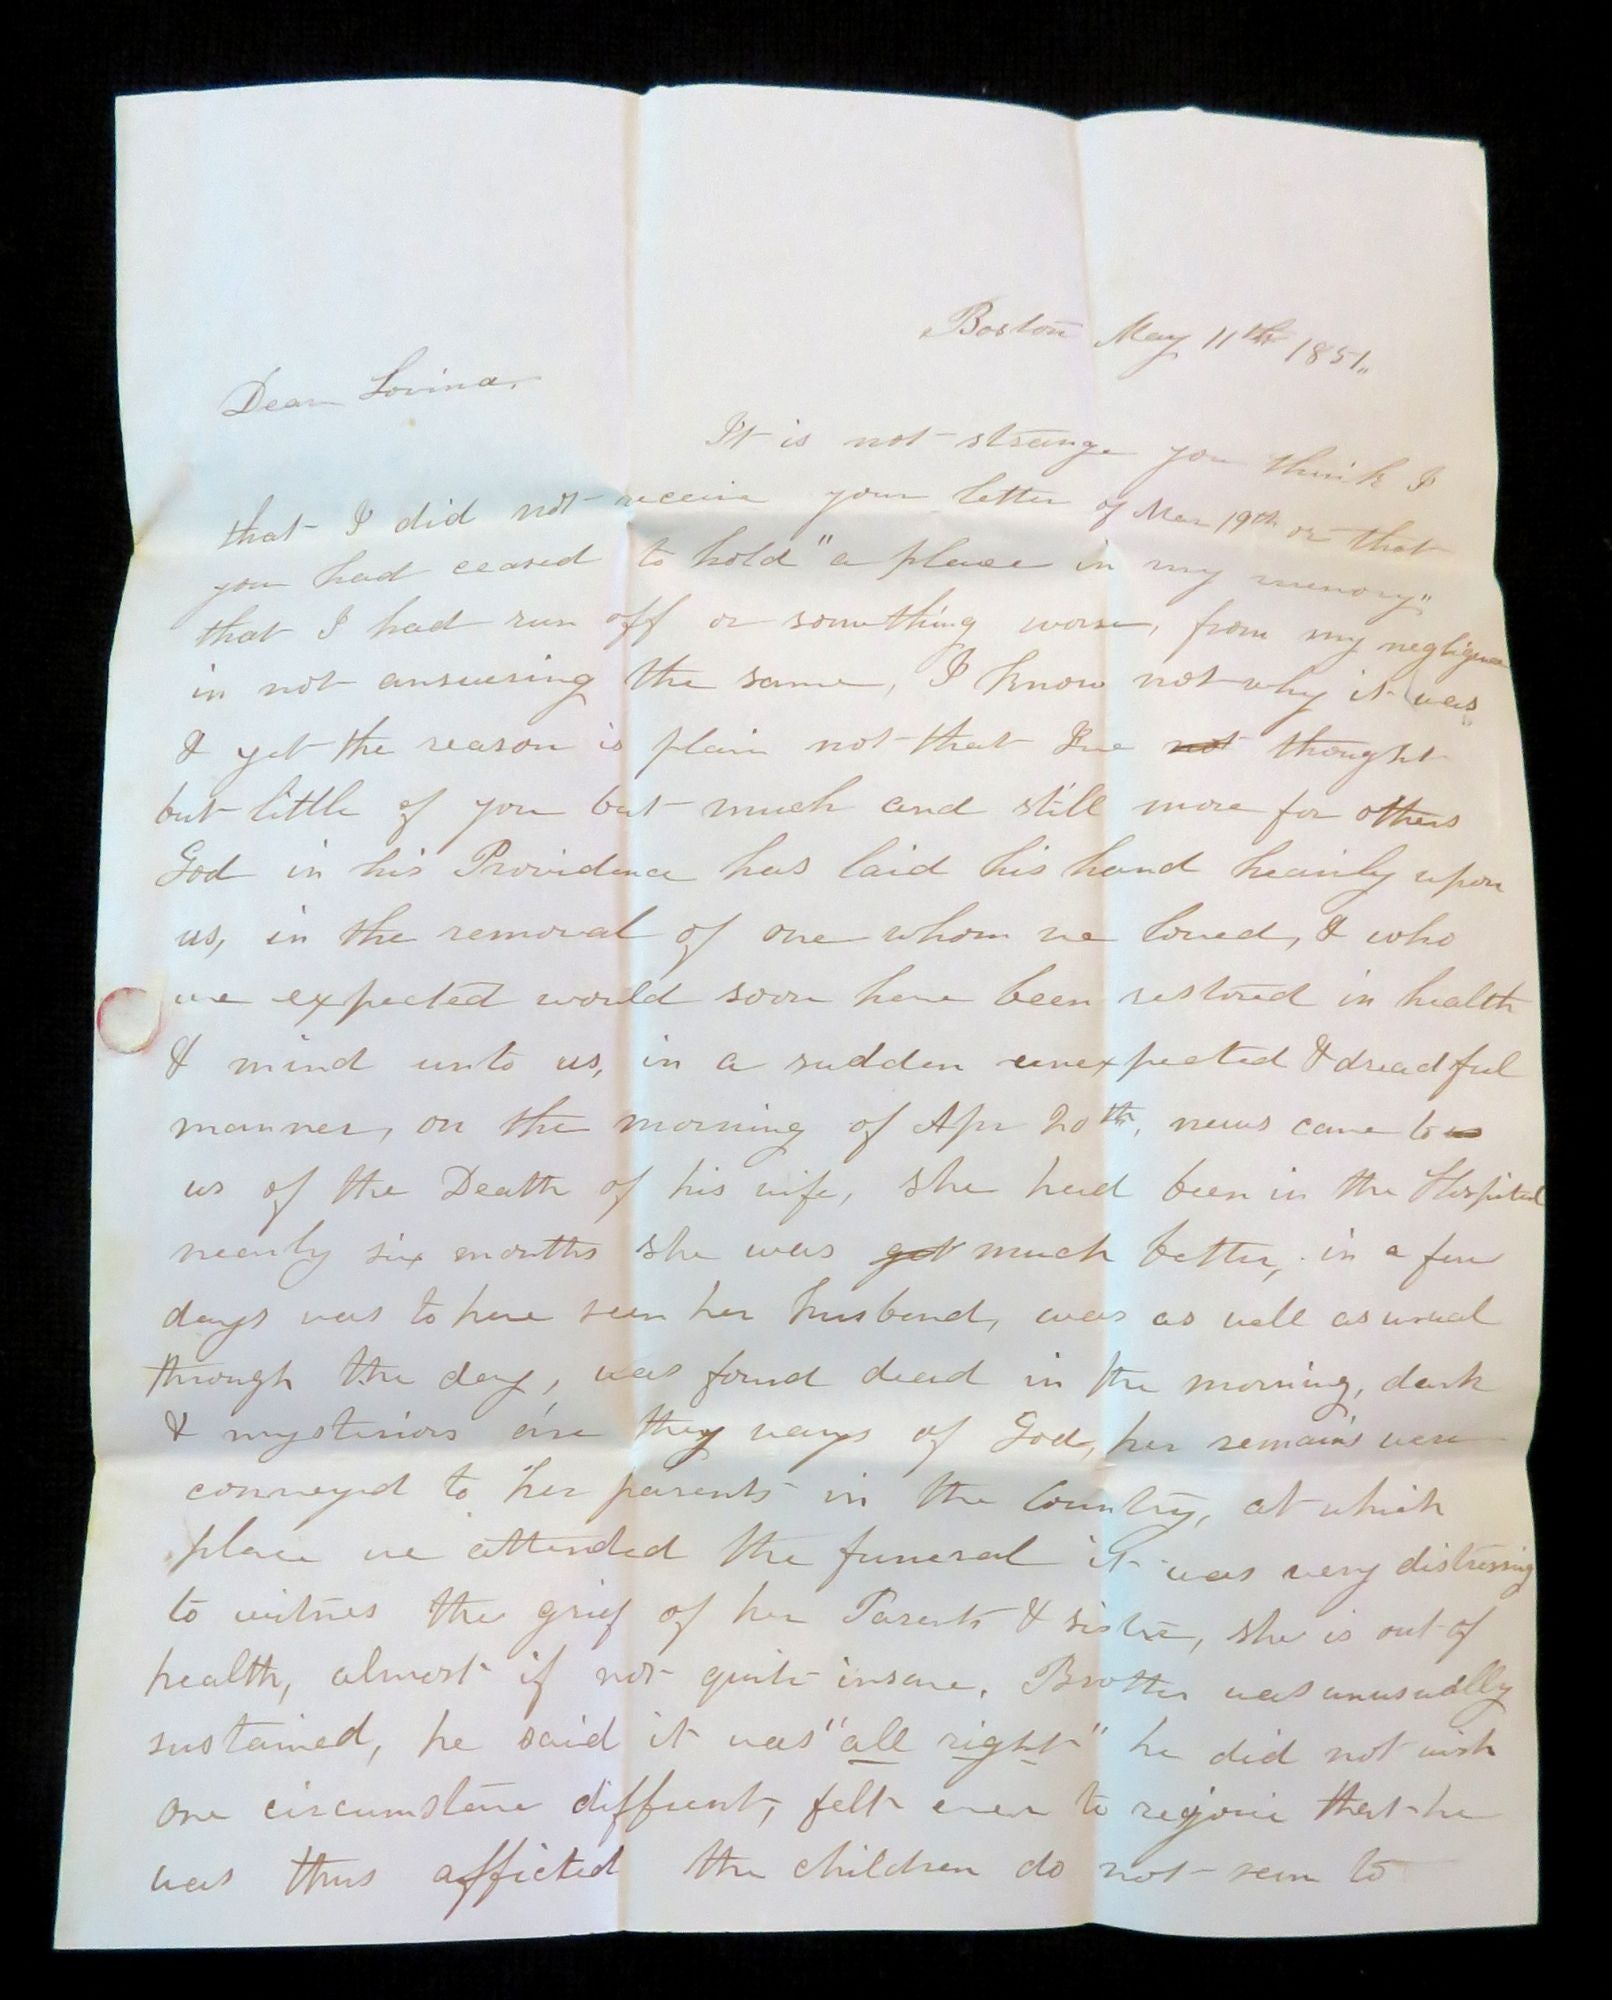 Boston May 11th 1851,,
Dear Lovina,
It is not strange you think I
that I did not receive your letter of Mar 19th or that
you had ceased to hold "a place in my memory"
that I had run off or something worse, from my negligence
in not answering the same, I know not why it was,
& yet the reason is plain not that I've not thought
but little of you but much and still more for others
God in his Providence has laid his hand heavily upon
us, in the removal of one whom we loved, & who
we expected would soon have been restored in health
& mind unto us, in a sudden unexpected & dreadful
manner, on the morning of Apr 20th, news came to us
us of the Death of his wife, she had been in the Hospital
nearly six months she was got much better, in a few
days was to have seen her husband, was as well as usual
through the day, was found dead in the morning, dark
& mysterious are they ways of God, her remains were
conveyed to her parents in the Country, at which
place we attended the funeral it was very distressing
to witness the grief of her Parents & sister, she is out of
health, almost if not quite insane, Brother was unusually
sustained, he said it was "all right" he did not wish
one circumstance different, felt even to rejoice that he
was thus afflicted the children do not seem to